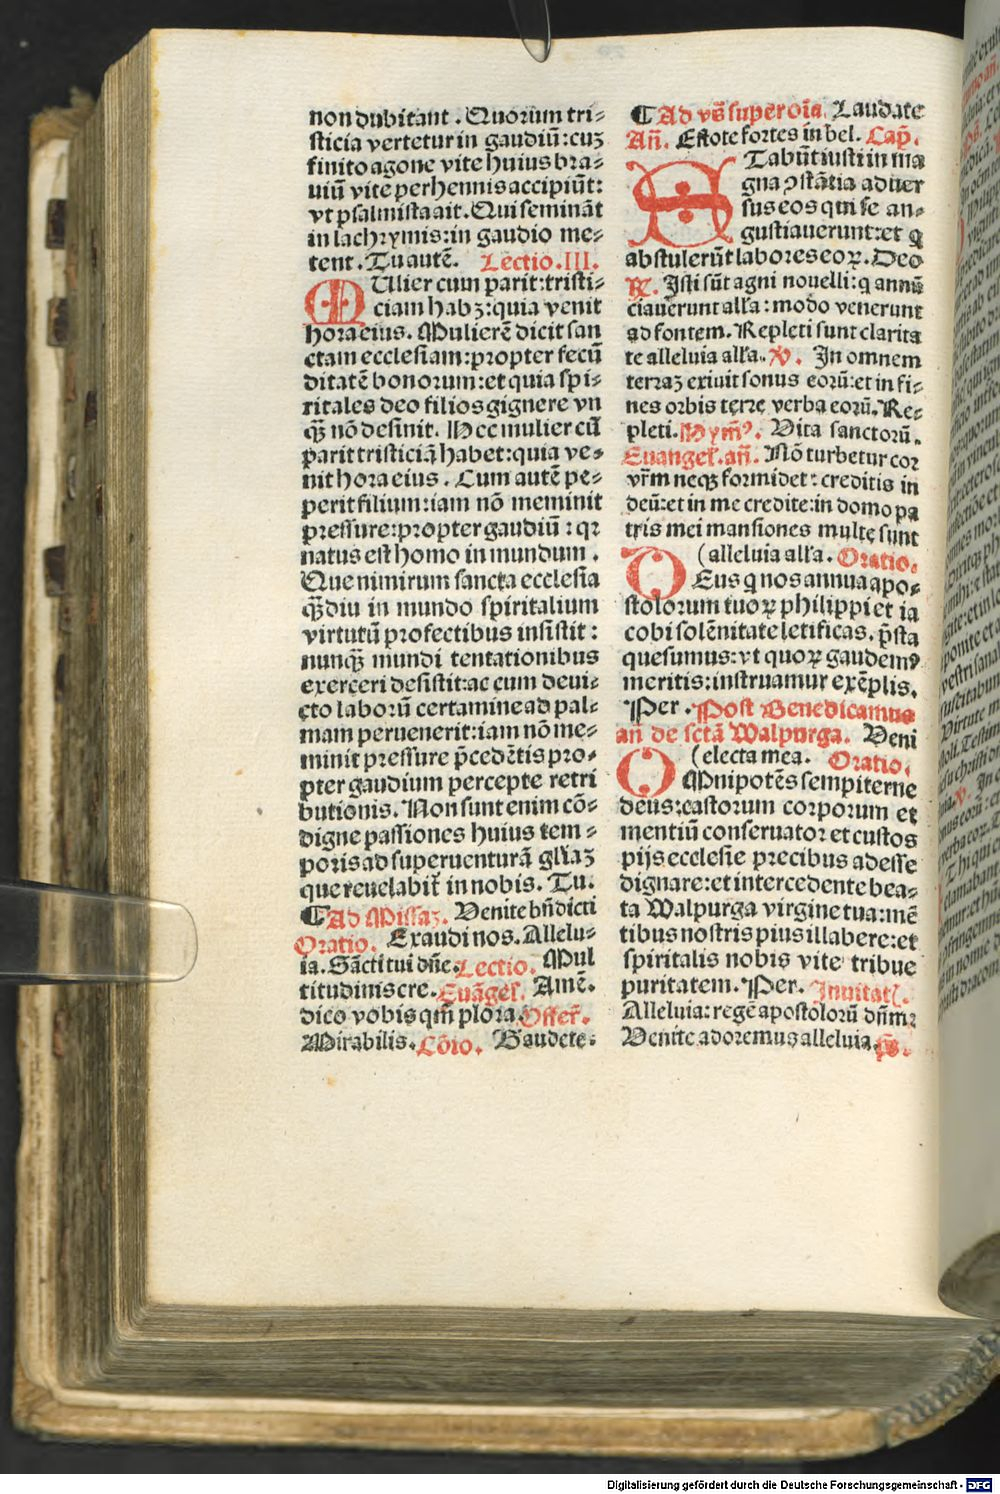 non dubitant . Quorum tri⸗
sticia vertetur in gaudiū: cuȝ
finito agone vite huius bra⸗
uiū vite perhennis accipiūt:
vt psalmista ait. Qui semināt
in lachrymis: in gaudio me⸗
tent. Tu autē. Lectio .III.
MUlier cum parit: tristi⸗
ciam habȝ: quia venit
hora eius. Mulierē dicit san
ctam ecclesiam: propter fecū
ditatē bonorum: et quia spi⸗
ritales deo filios gignere vn
qȝ̄ nō desinit. Hec mulier cū
parit tristiciā habet: quia ve⸗
nit hora eius. Cum autē pe⸗
perit filium: iam nō meminit
pressure: propter gaudiū: qꝛ
natus est homo in mundum .
Que nimirum sancta ecclesia
qȝ̄diu in mundo spiritalium
virtutū profectibus insistit :
nunqȝ̄ mundi tentationibus
exerceri desistit: ac cum deui⸗
cto laborū certamine ad pal⸗
mam peruenerit: iam nō me⸗
minit pressure p̄cedētis pro⸗
pter gaudium percepte retri
butionis. Non sunt enim cō⸗
digne passiones huius tem⸗
poris ad superuenturā gl̄iaȝ
que reuelabit̄ in nobis. Tu.
¶ Ad Missaȝ. Venite bn̄dicti
Oratio. Exaudi nos. Allelu⸗
ia. Sācti tui dn̄e. Lectio. Mul
titudinis cre. Euāgel̄. Amē.
dico vobis qm̄ plora. Offer̄.
Mirabilis. Cōio. Gaudete⸗
¶ Ad vs̄ super oīa. Laudate
An̄. Estote fortes in bel. Cap̄.
STabūt iusti in ma
gna ꝯstātia aduer
sus eos qui se an⸗
gustiauerunt: et q
abstulerūt labores eoꝝ. Deo
R̄. Isti sūt agni nouelli: q annū
ciauerunt all̄a: modo venerunt
ad fontem. Repleti sunt clarita
te alleluia all̄a. V̄. In omnem
terraȝ exiuit sonus eorū: et in fi⸗
nes orbis terre verba eorū. Re⸗
pleti. Hym̄ꝰ. Vita sanctorū.
Euangel̄. an̄. Nō turbetur cor
vr̄m neqȝ formidet: creditis in
deū: et in me credite: in domo pa
tris mei mansiones multe sunt
(alleluia all̄a. Oratio.
DEus q nos annua apo⸗
stolorum tuoꝝ philippi et ia
cobi solēnitate letificas. p̄sta
quesumus: vt quoꝝ gaudemꝰ
meritis: instruamur exēplis.
Per . Post Benedicamus
an̄ de sctā Walpurga. Veni
(electa mea. Oratio.
OMnipotēs sempiterne
deus: castorum corporum et
mentiū conseruator et custos
pijs ecclesie precibus adesse
dignare: et intercedente bea⸗
ta Walpurga virgine tua: mē
tibus nostris pius illabere: et
spiritalis nobis vite tribue
puritatem. Per. Inuitat̄.
Alleluia: regē apostolorū dn̄m:
Venite adoremus alleluia. p̄s.
Digitalisierung gefördert durch die Deutsche Forschungsgemeinschaft - DFG